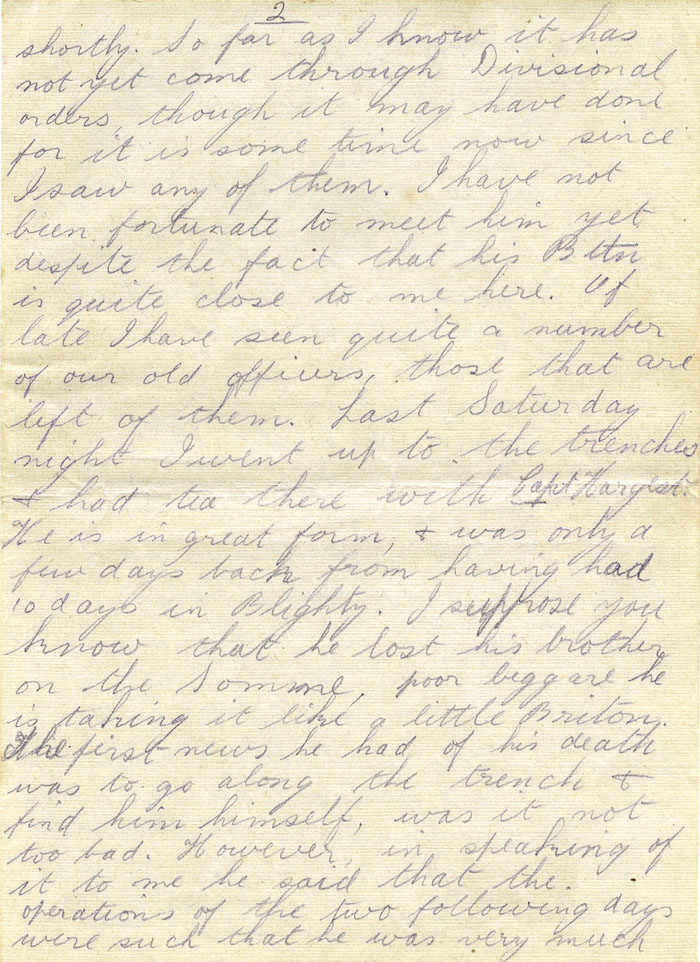 2
shortly. So far as I know it has
not yet come through Divisional
orders, though it may have done
for it is some time now since
I saw any of them. I have not
been fortunate to meet him yet
despite the fact that his Bttn
is quite close to me here. Of
late I have seen quite a number
of our old officers, those that are
left of them. Last Saturday
night I went up to the trenches
& had tea there with Capt Hargest.
He is in great form, & was only a
few days back from having had
10 days in Blighty. I suppose you
know that he lost his brother
on the Somme, poor beggare he
is taking it like a little Briton.
The first news he had of his death
was to go along the trench &
find him himself, was it not
too bad. However, in speaking of
it to me he said that the
operations of the two following days
were such that he was very much